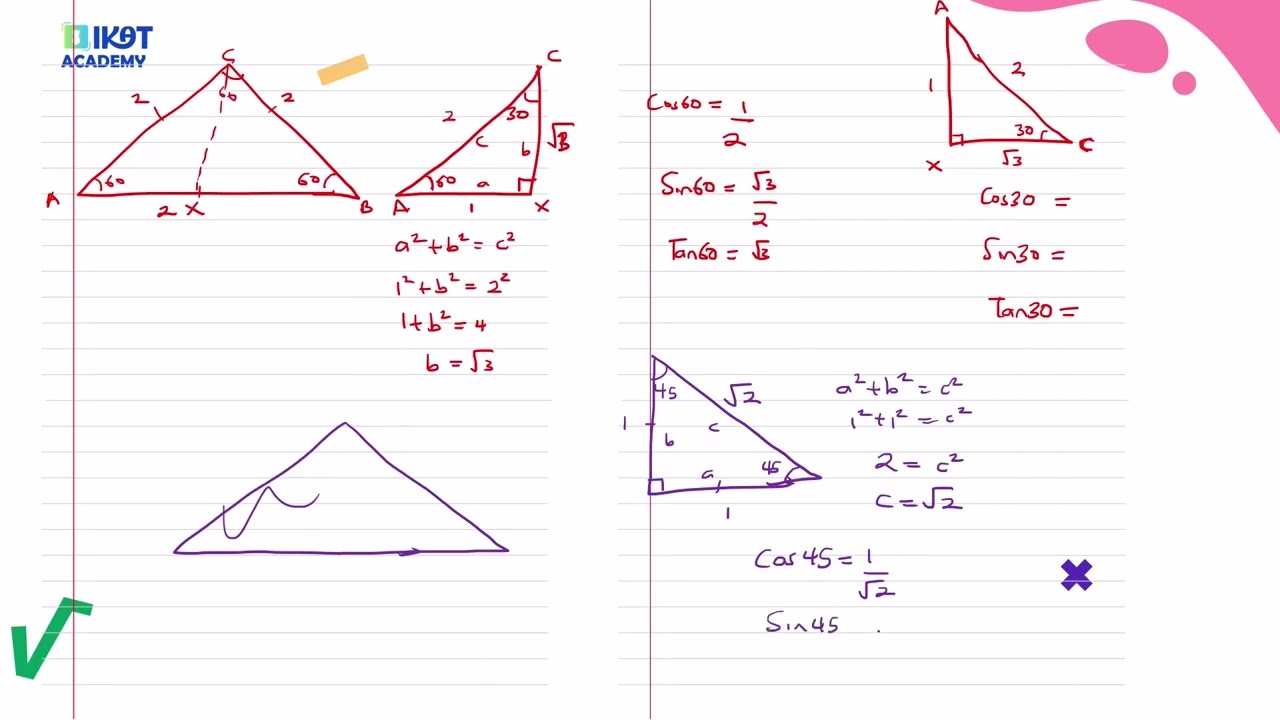 IKOT
ACADEMY
C
60
2
2
60
60
A
2
X
B
C
30
2
c
b
√3
60
a
A
1
X
a² + b² = c²
1² + b² = 2²
1 + b² = 4
b = √3
Cos60 = 1/2
Sin60 = √3/2
Tan60 = √3
A
1
2
30
X
√3
C
Cos30 =
Sin30 =
Tan30 =
45
√2
1
b
c
a
45
1
a² + b² = c²
1² + 1² = c²
2 = c²
c = √2
Cos45 = 1/√2
Sin45